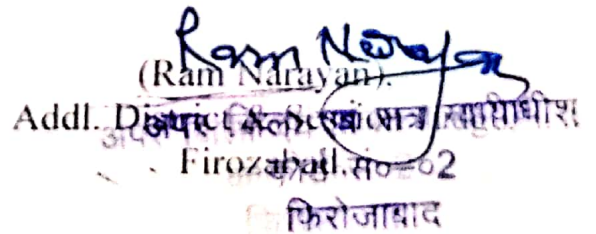 Ram Narayan
(Ram Narayan).
Addl. District & Sessions
अपर जिला एवं सत्र न्यायाधीश
Firozabad.
सं०-०2
फिरोजाबाद